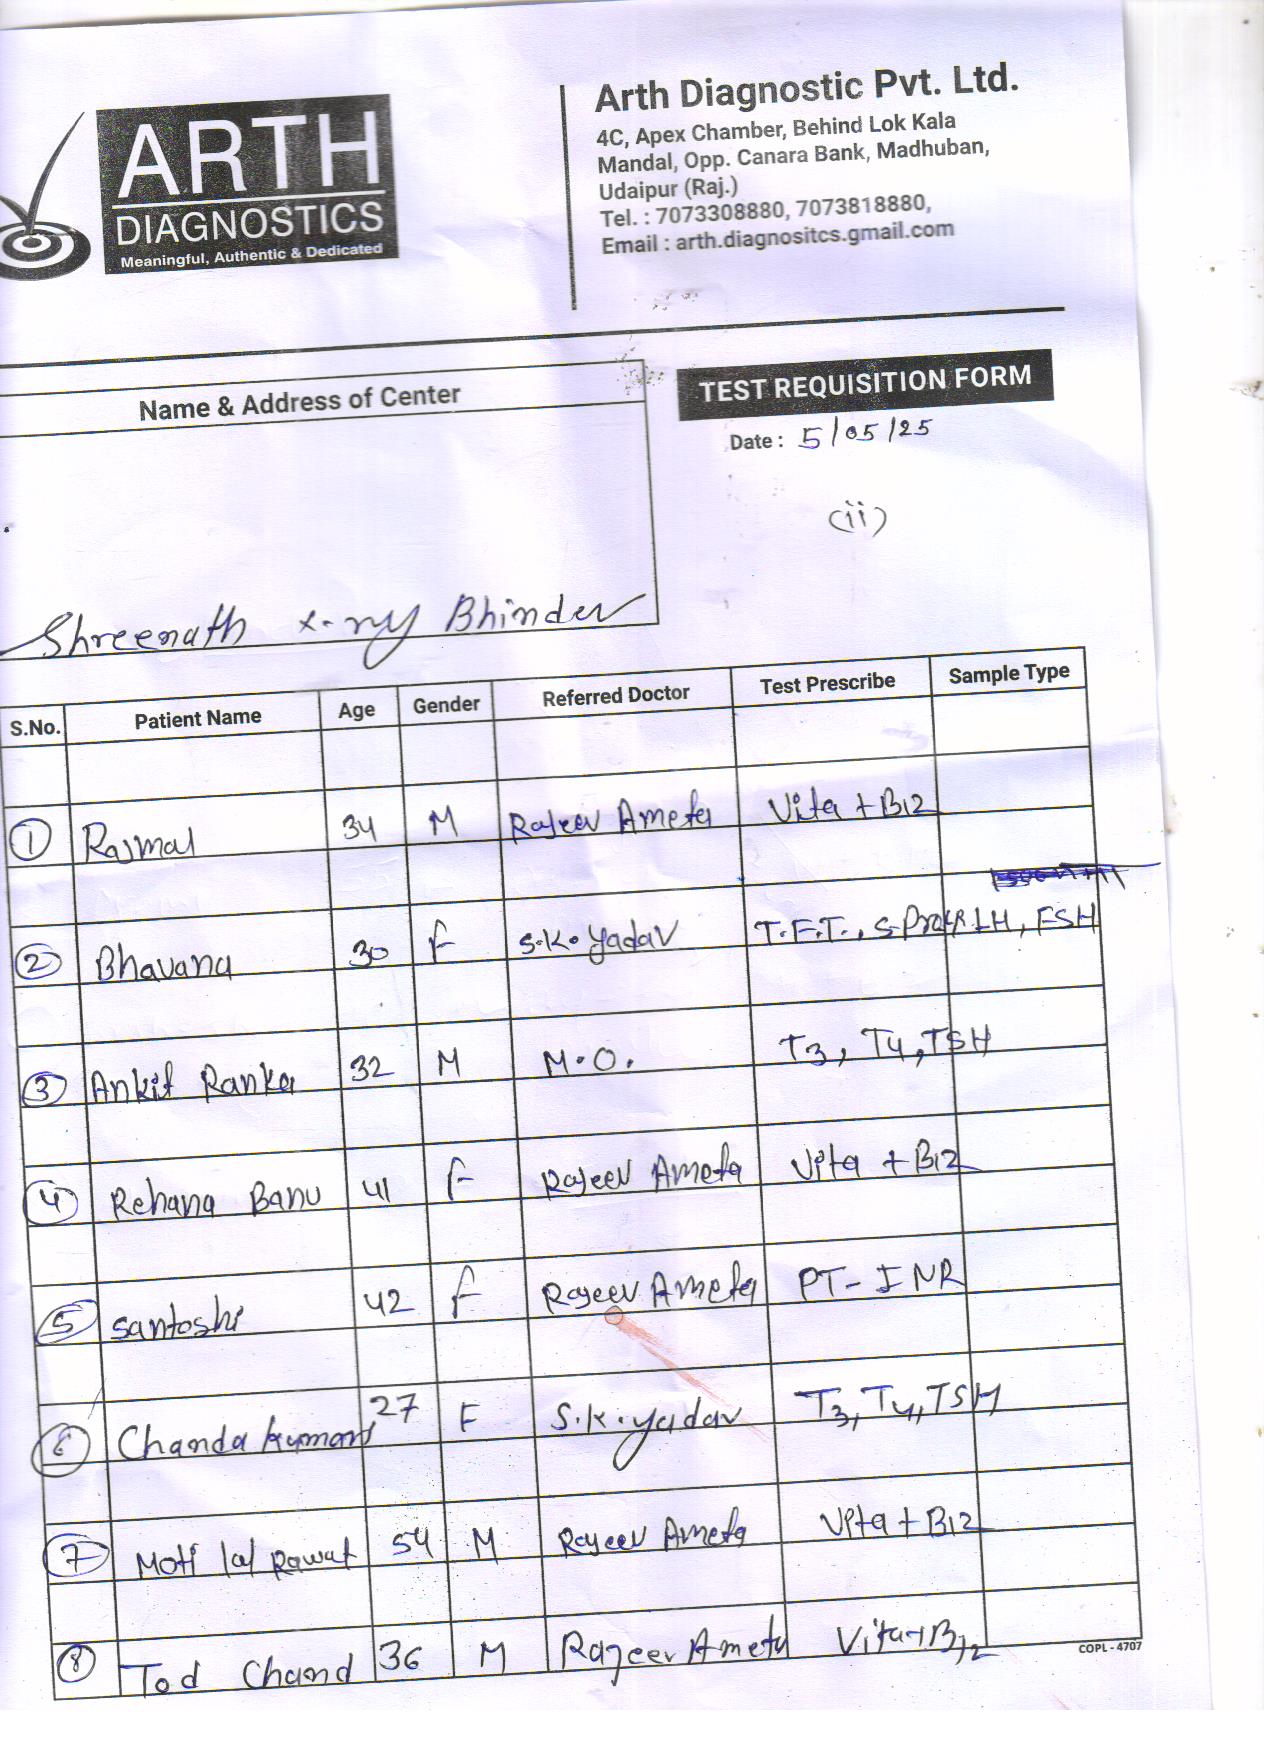 ARTH
DIAGNOSTICS
Meaningful, Authentic & Dedicated
Arth Diagnostic Pvt. Ltd.
4C, Apex Chamber, Behind Lok Kala
Mandal, Opp. Canara Bank, Madhuban,
Udaipur (Raj.)
Tel. : 7073308880, 7073818880,
Email : arth.diagnositcs.gmail.com
Name & Address of Center
TEST REQUISITION FORM
Date : 5/05/25
(ii)
Shreenath x-ray Bhinder
S.No. Patient Name Age Gender Referred Doctor Test Prescribe Sample Type
1 Rajmal 34 M Rajeev Ameta Vita + B12
2 Bhavana 30 F S.K. Yadav T.F.T., S-Prol, LH, FSH
3 Ankit Ranka 32 M M.O. T3, T4, TSH
4 Rehana Banu 41 F Rajeev Ameta Vita + B12
5 Santoshi 42 F Rajeev Ameta PT-INR
6 Chanda Kumari 27 F S.K. Yadav T3, T4, TSH
7 Moti lal Rawat 54 M Rajeev Ameta Vita + B12
8 Tod Chand 36 M Rajeev Ameta Vita + B12
COPL - 4707